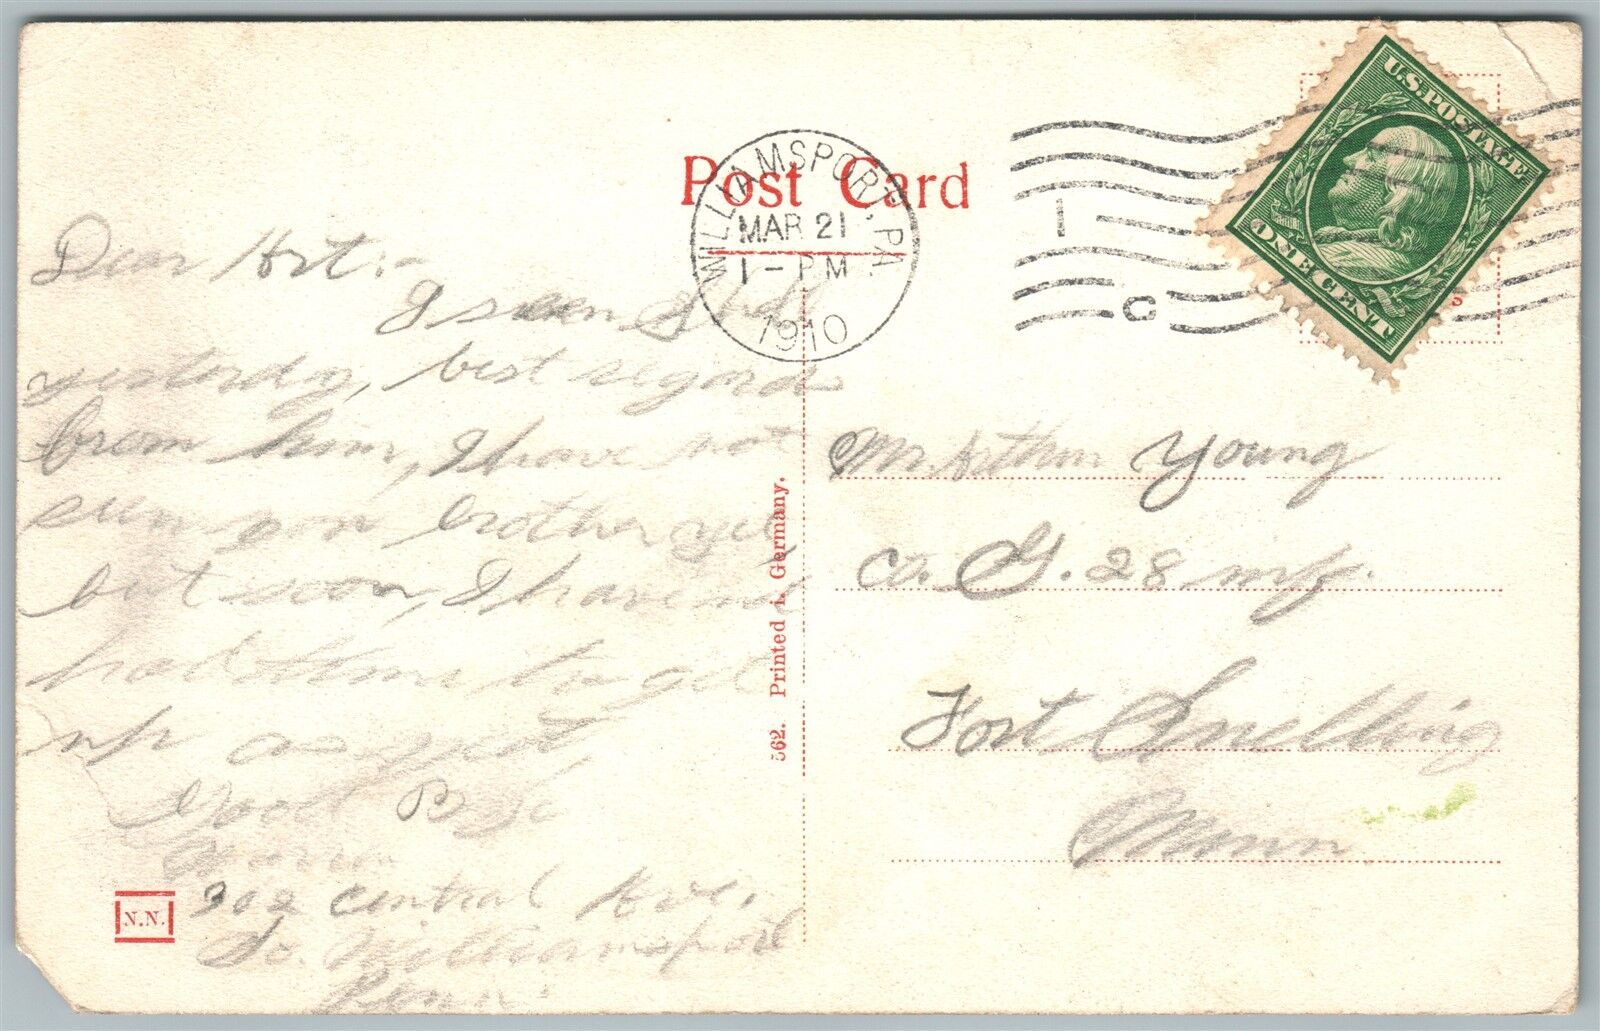 Post Card
WILLIAMSPORT, PA.
MAR 21
1 - PM
1910
1
C
U.S. POSTAGE
ONE CENT
Dear Art:-
I seen
yesterday, best regards
from him, I have not
seen your brother yet
but soon, I have not
had time to get
up as yet
Good Bye
302 Central Ave.
So. Williamsport
Penn.
Mr. Arthur Young
Co. G. 28 Inf.
Fort Snelling
Minn
562. Printed i. Germany.
N.N.